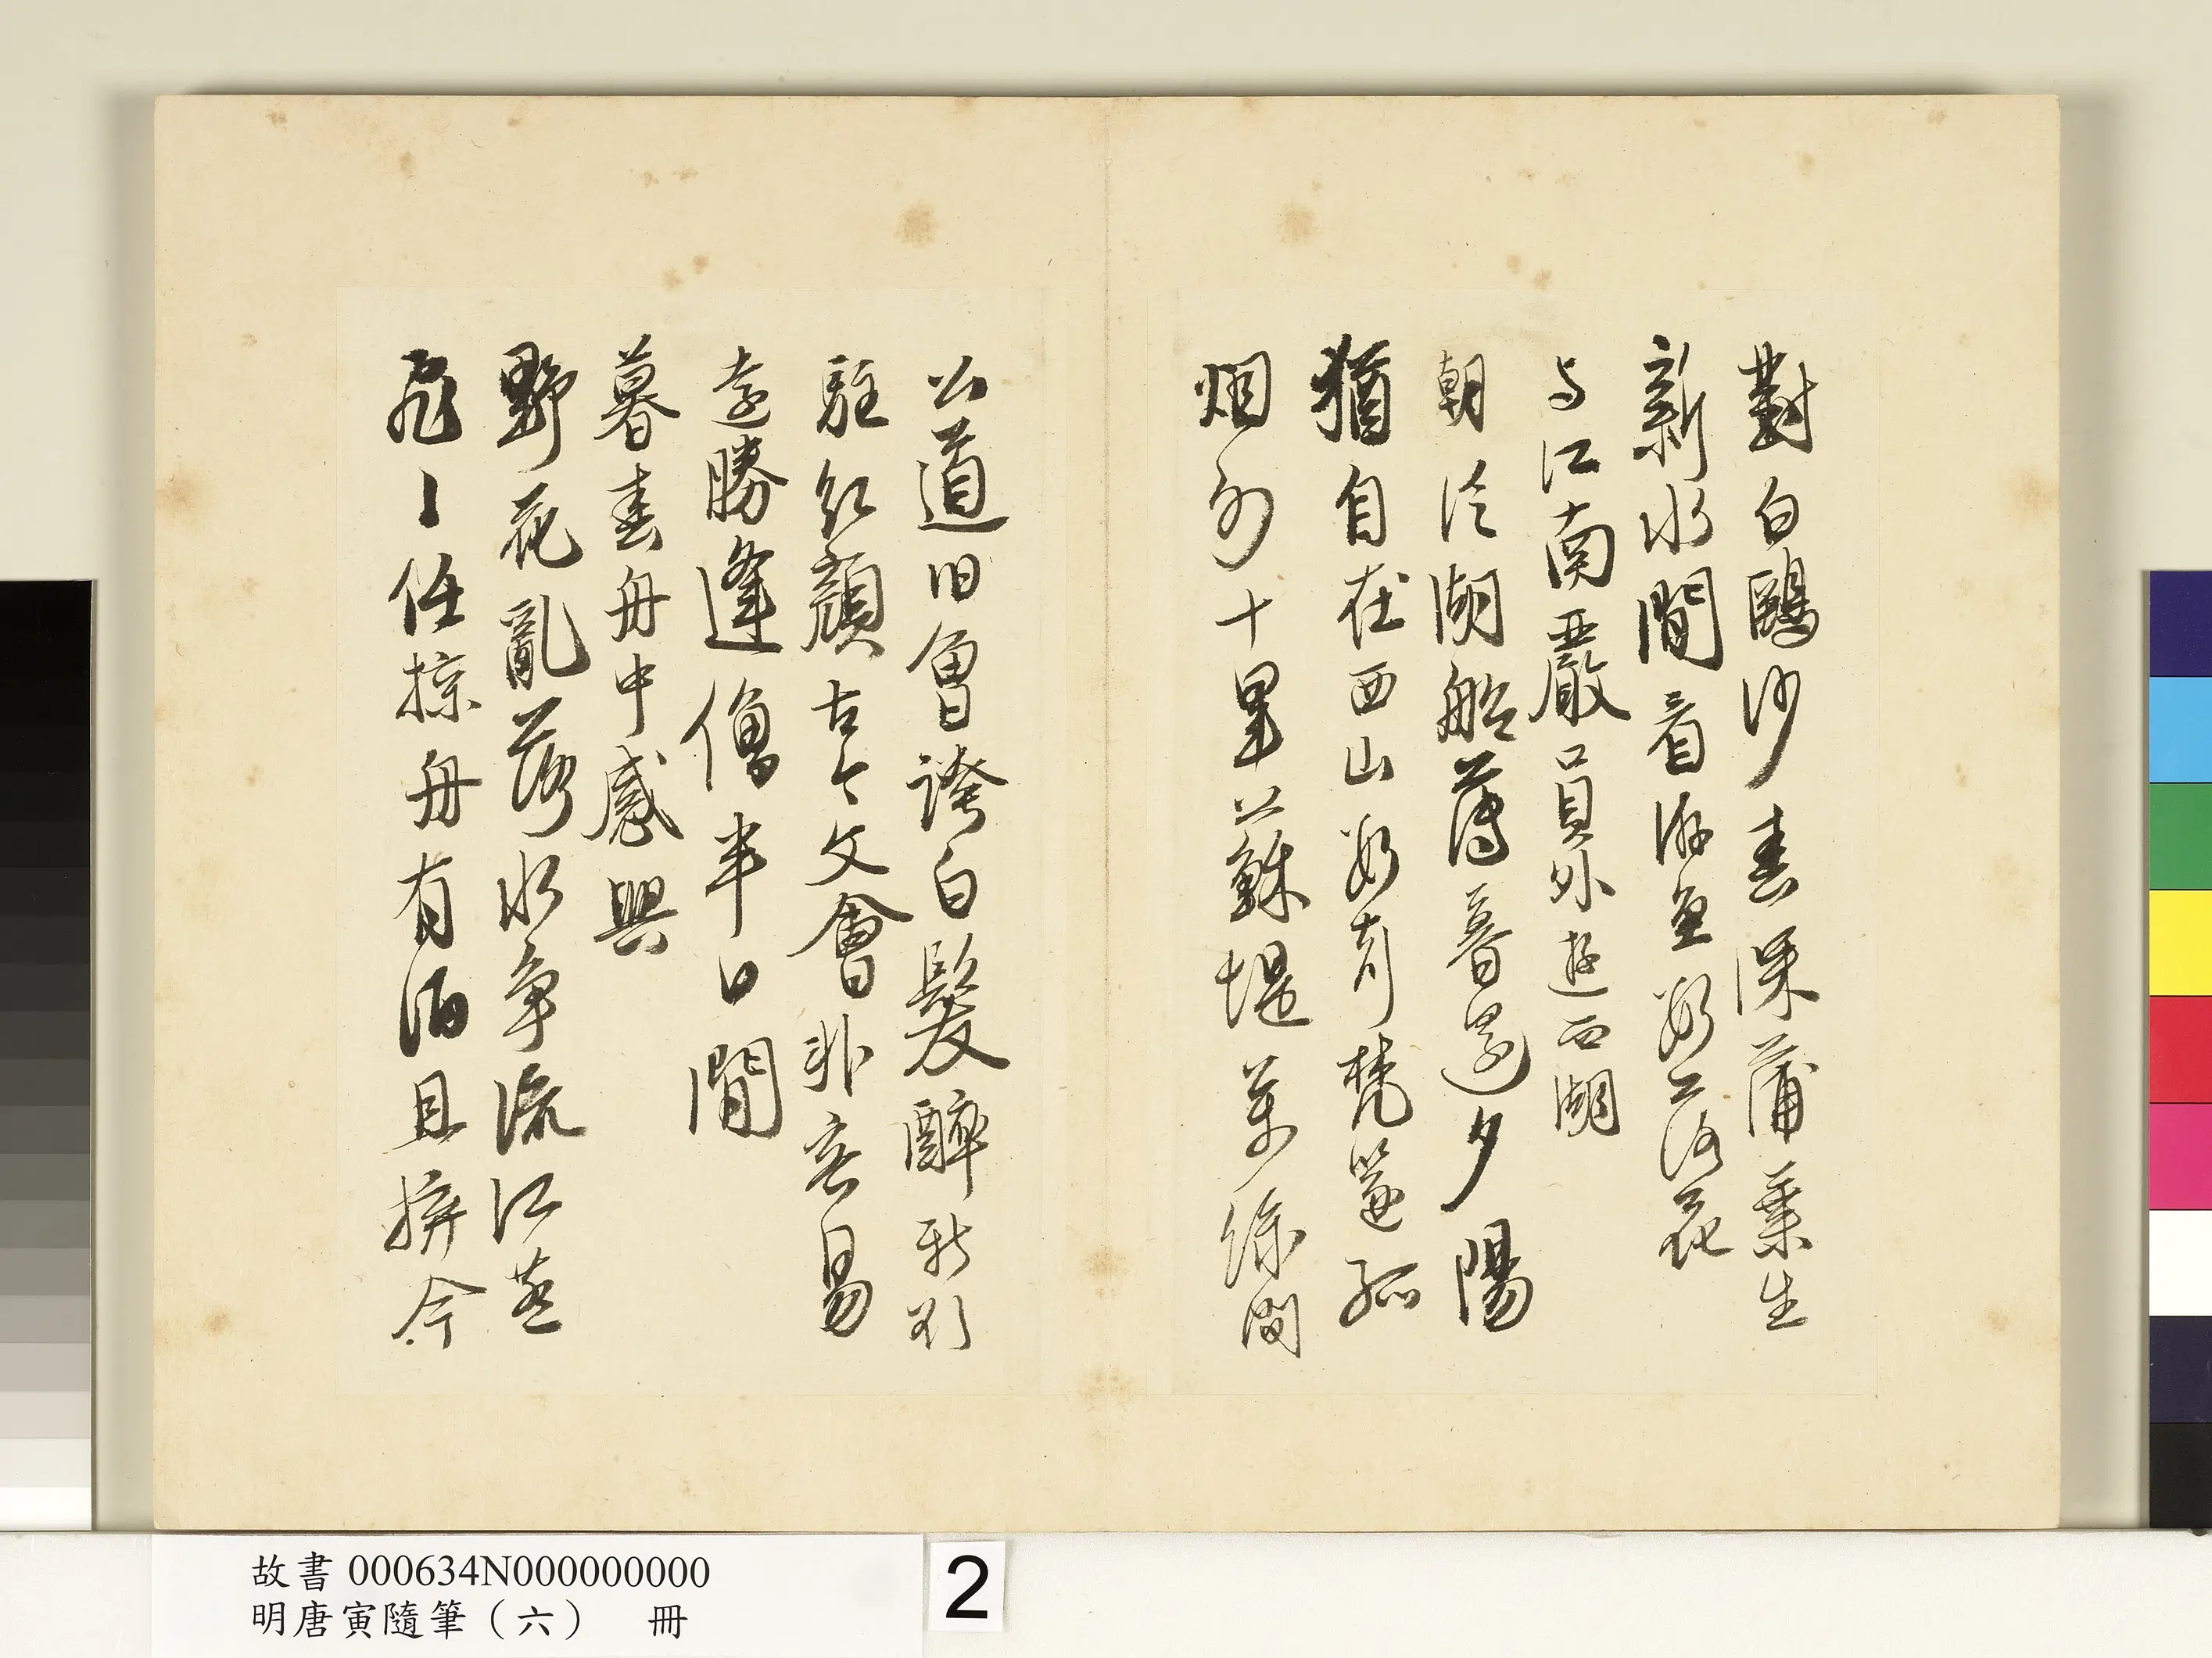 對白鷗沙春深蒲葉生
新水閒看游魚數落花
与江南嚴員外遊西湖
朝從湖船薄暮還夕陽
猶自在西山數声梵篴孤
烟外十里蘇堤萬綠間
公道旧曾誇白髮醉
駐紅顏古今文會非容易
遠勝逢僧半日閒
暮春舟中感興
野花亂落水争流江燕
飛飛任掠舟有酒且拚今
故書 000634N000000000
明唐寅隨筆（六） 冊
2